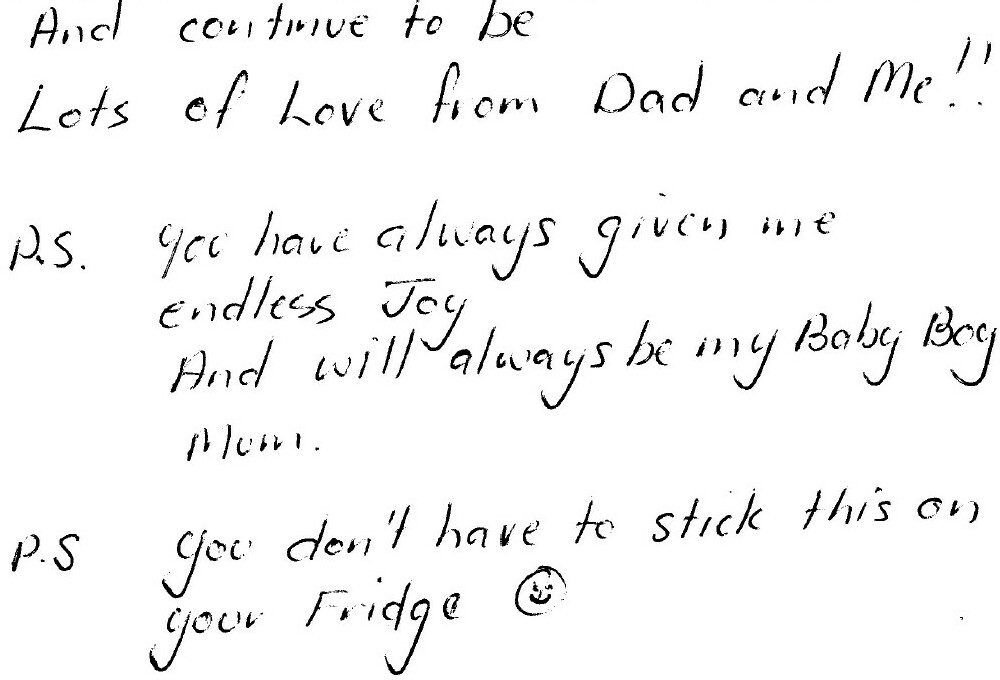 And continue to be
Lots of Love from Dad and Me!!
P.S. you have always given me
endless Joy
And will always be my Baby Boy
Mum.
P.S you don't have to stick this on
your Fridge ☺